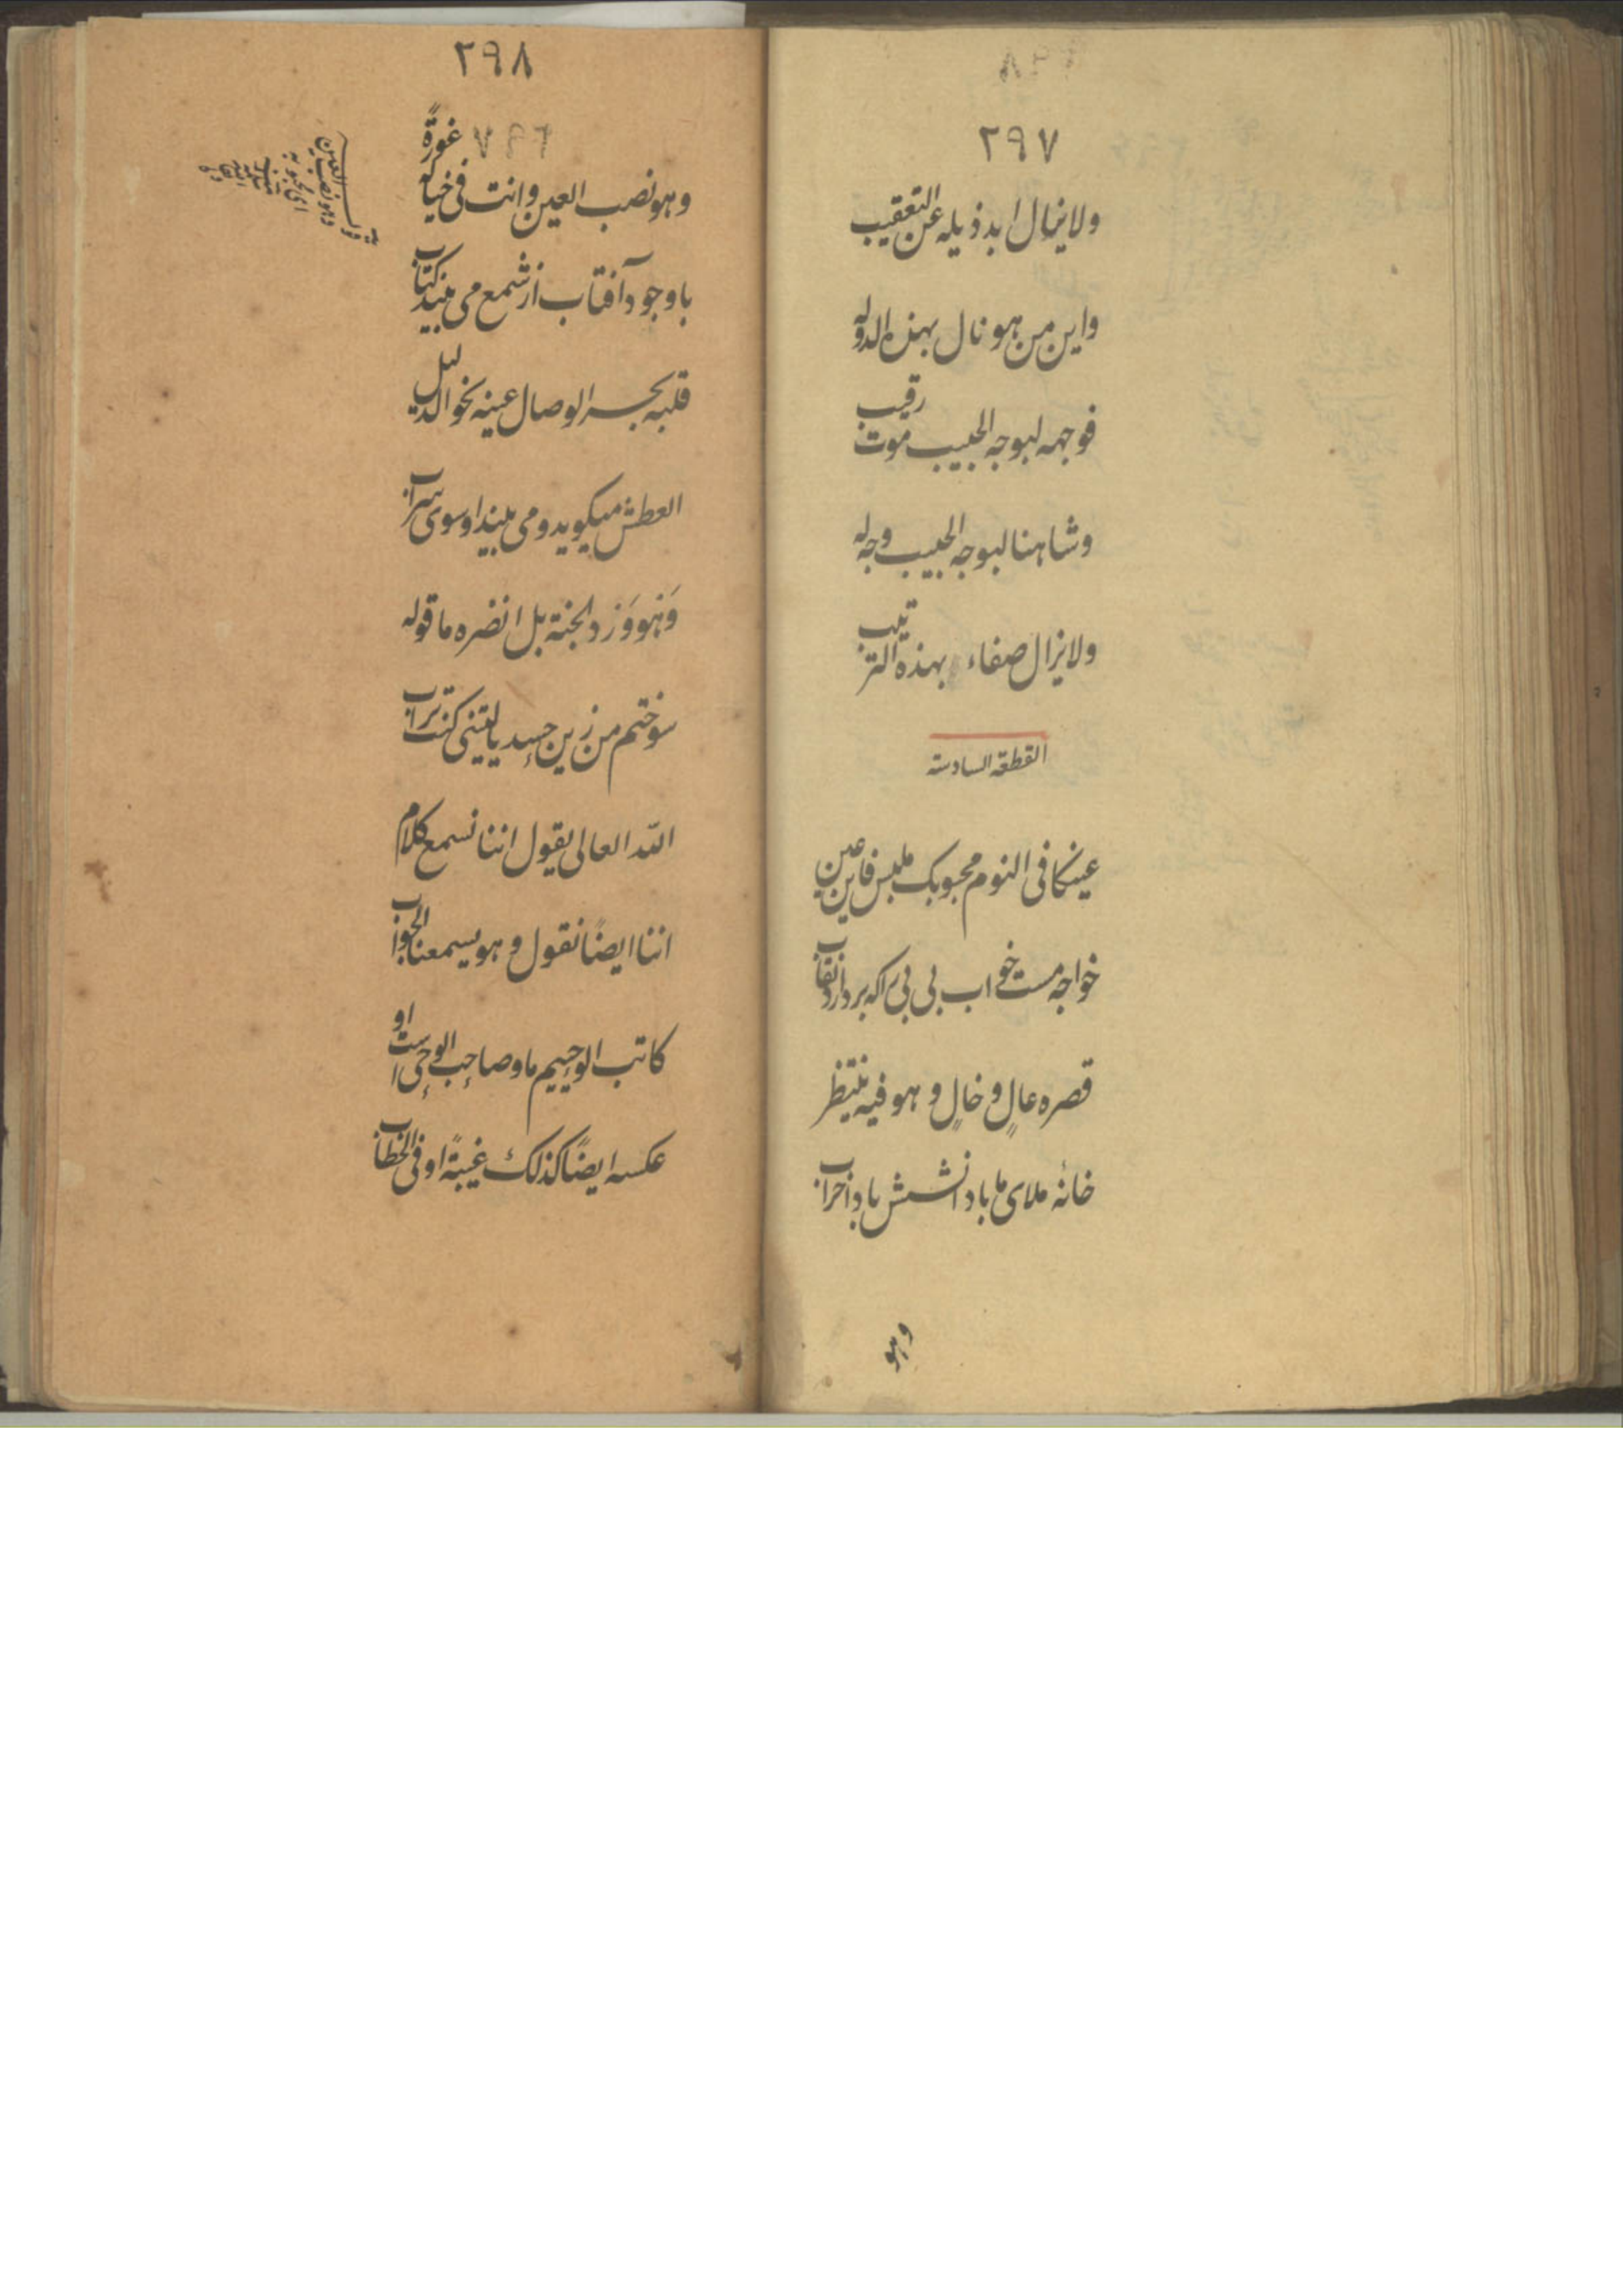 ٢٩٧
ولا يزال ابد ذيله عن التعقيب
واين من هو نال بهذه الدوله
فوجهه لبوجه الحبيب موت رقيب
وشاهنا لبوجه الحبيب وجه له
ولا يزال صفاء بهذه الترتيب
القطعة السادسة
عينكا فى النوم محبوبك ملبس فاين عين
خواجه مست خواب بى بى را كه بردارد نقاب
قصره عالٍ و خالٍ و هو فيه منتظر
خانهٔ ملاى ما باد انشستش باد خراب
وهو
٢٩٨
وهو نصب العين وانت فى خيالٍ غورةً
باوجود آفتاب از شمع مى بيند كتاب
قلبه بحر الوصال عينه نحو الدليل
العطش ميكويد و مى بيند او سوى سراب
وَهو وَرد الجنة بل انضره ما قوله
سوختم من زين حسد ياليتنى كنت تراب
الله العالى يقول اننا نسمع كلام
اننا ايضًا نقول و هو يسمعنا الجواب
كاتب الوحييم ما و صاحب الوحى است او
عكسه ايضًا كذلك غيبةً او فى الخطاب
وهو نصب العين